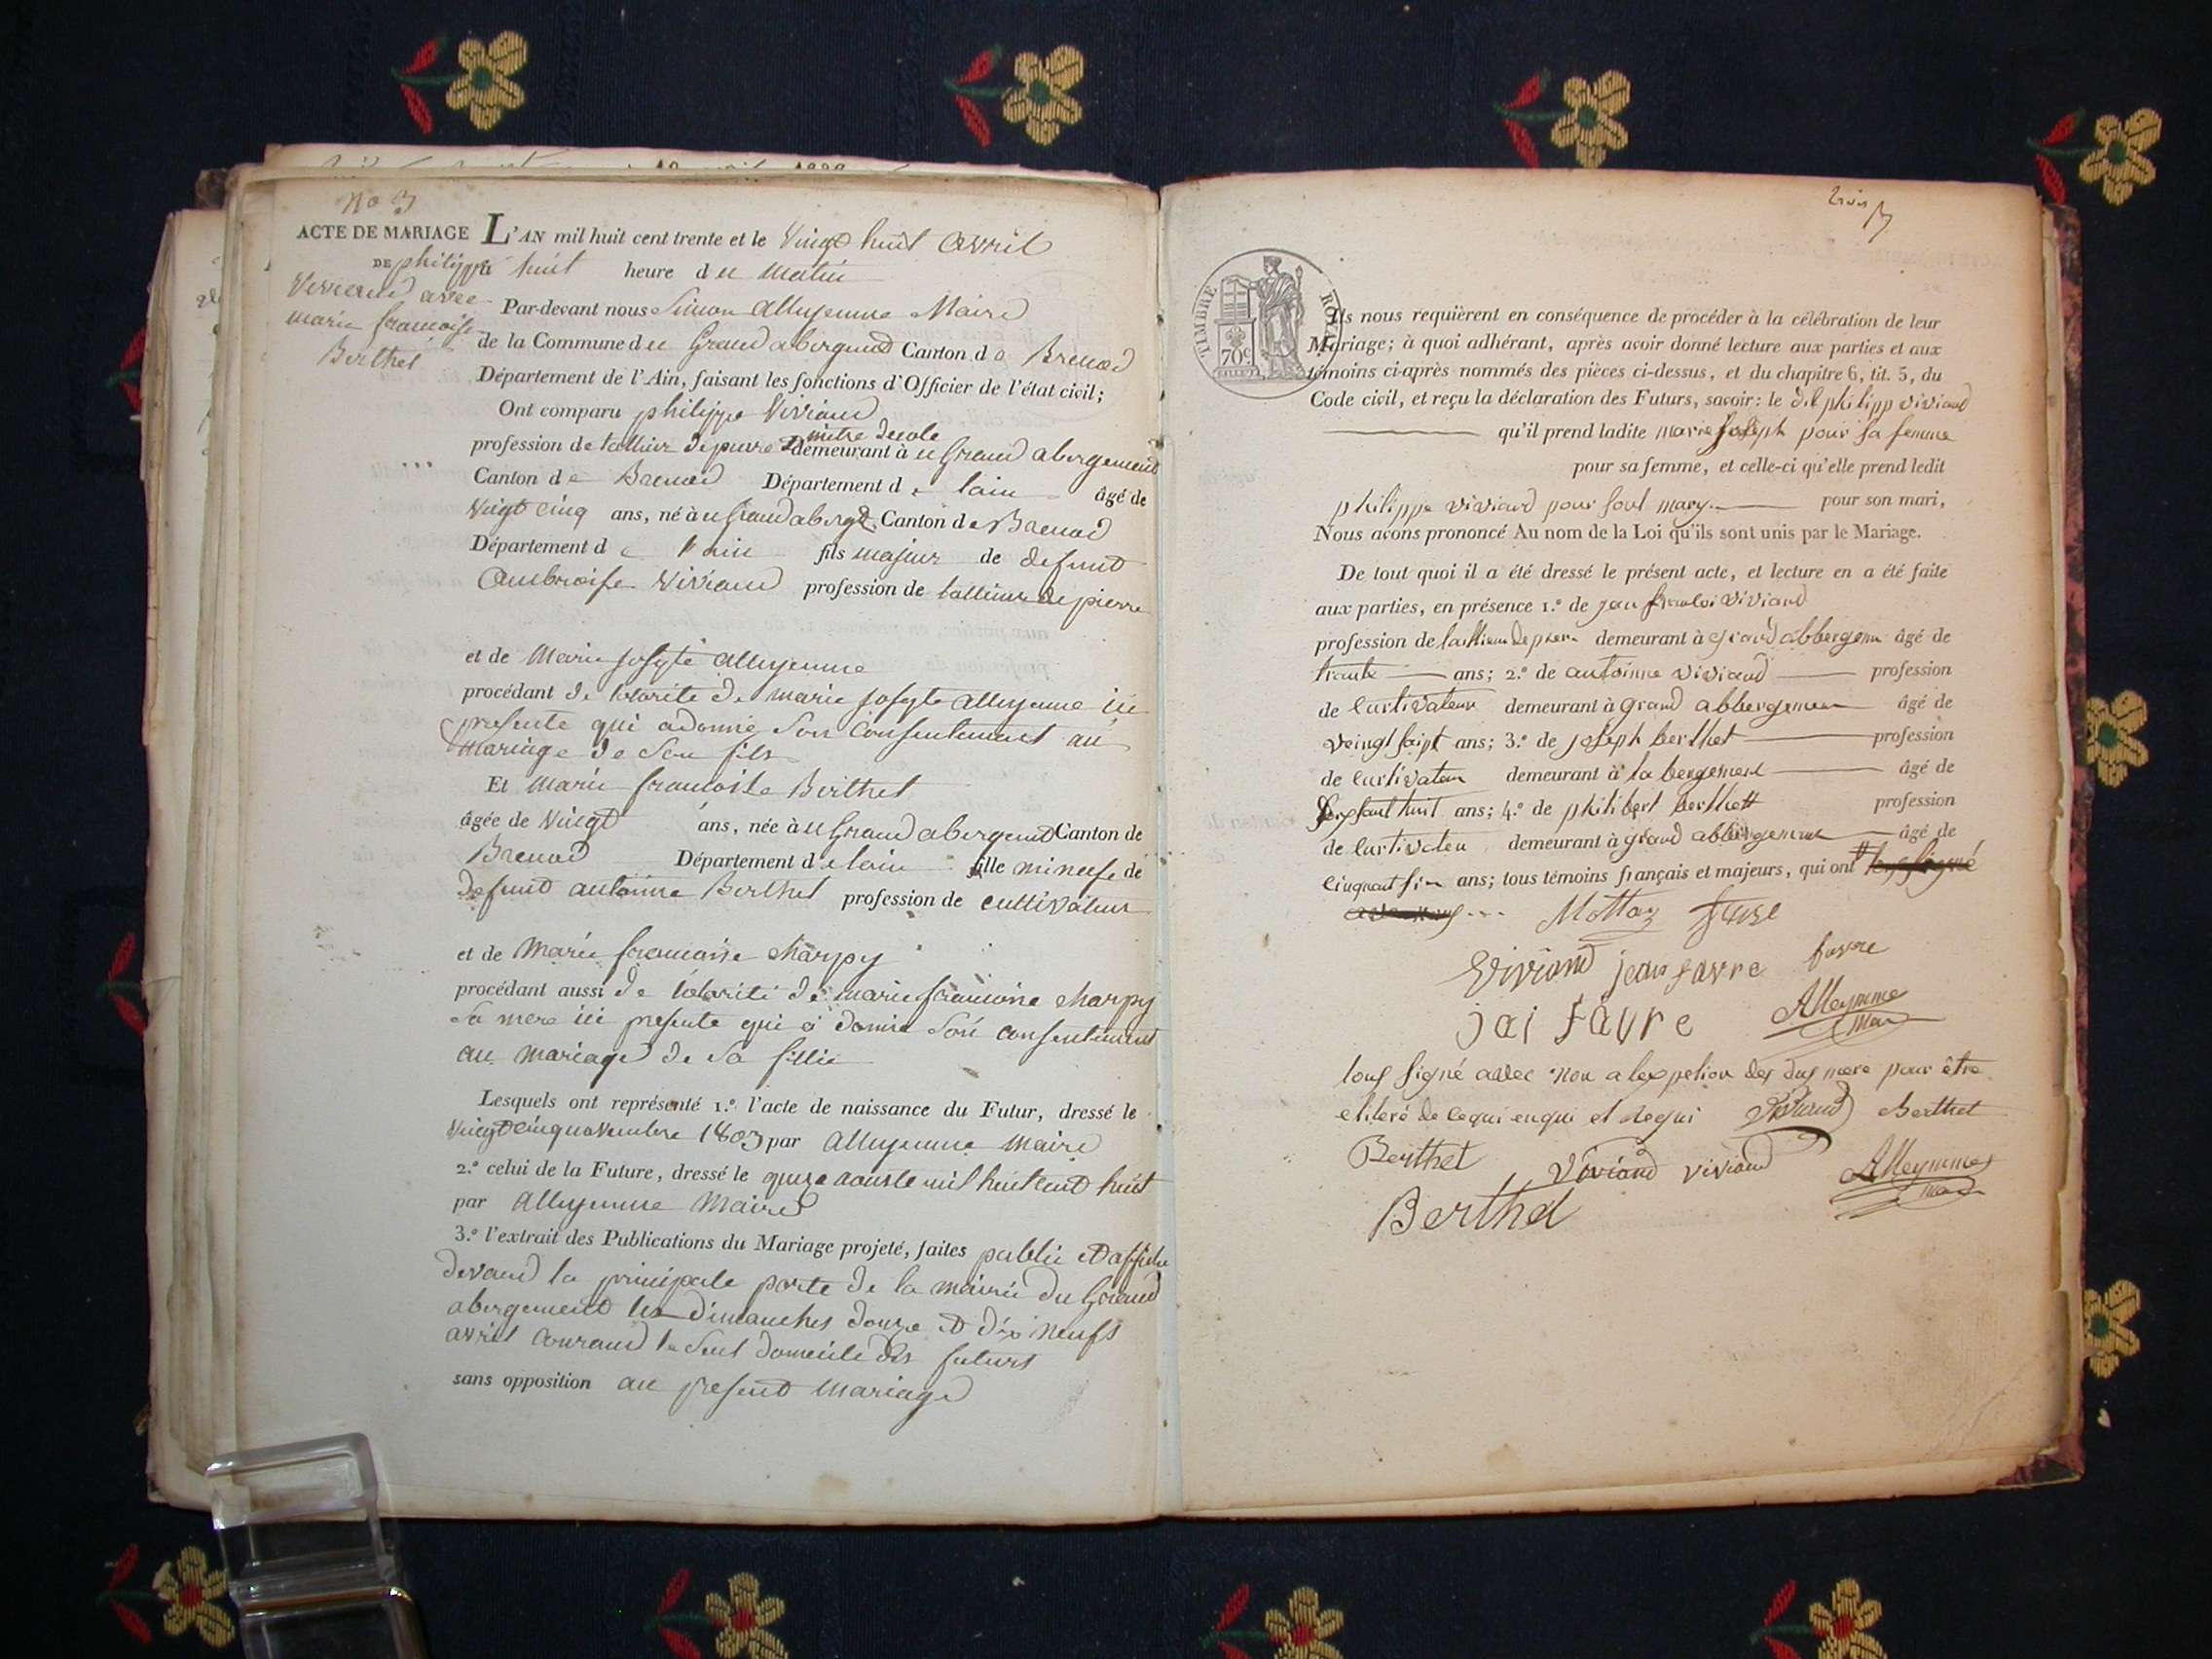 No 3
ACTE DE MARIAGE
DE philippe
Viviand avec
marie francoise
Berthet
L'AN mil huit cent trente et le Vingt huit avril
huit heure du matin
Par-devant nous Simon alleyemme Maire
de la Commune du Grand abergement Canton de Brenod
Département de l'Ain, faisant les fonctions d'Officier de l'état civil;
Ont comparu philippe Viviand
mitre decole
profession de tallieur de pierre demeurant à u Grand abergement
Canton de Brenod Département de lain âgé de
Vingt cinq ans, né à u Grand aberg. Canton de Brenod
Département de lain fils majeur de defunt
Ambroise Viviand profession de tallieur de pierre
et de Marie josepte alleyemme
procédant de lotorité de marie josepte alleyemme ici
presente qui a donné son consentement au
mariage de son fils
Et marie francoise Berthet
âgée de vingt ans, née à u Grand abergement Canton de
Brenod Département de lain fille mineuse de
defunt antoinne Berthet profession de cultivateur
et de Marie francoise charpy
procédant aussi de lotorité de marie francoise charpy
sa mere ici presente qui a donné son consentement
au mariage de sa fillie
Lesquels ont représenté 1.° l'acte de naissance du Futur, dressé le
vingt cinq novembre 1803 par alleyemme maire
2.° celui de la Future, dressé le quize aouste mil huit cent huit
par alleyemme Maire
3.° l'extrait des Publications du Mariage projeté, faites publié et affiché
devand la principale porte de la mairie du Grand
abergement les dimanches douze et dix neufs
avril courand le seul domicile des futurs
sans opposition au present mariage
trois
3
TIMBRE ROYAL
70c
Ils nous requièrent en conséquence de procéder à la célébration de leur
Mariage; à quoi adhérant, après avoir donné lecture aux parties et aux
témoins ci-après nommés des pièces ci-dessus, et du chapitre 6, tit. 5, du
Code civil, et reçu la déclaration des Futurs, savoir: le dit philipp viviand
qu'il prend ladite marie joseph pour sa femme
pour sa femme, et celle-ci qu'elle prend ledit
philippe viviand pour sont mary pour son mari,
Nous avons prononcé Au nom de la Loi qu'ils sont unis par le Mariage.
De tout quoi il a été dressé le présent acte, et lecture en a été faite
aux parties, en présence 1.° de jean franloi viviand
profession de taillieur de pierre demeurant à grand abbergem âgé de
trante ans; 2.° de antoinne viviand profession
de curtivateur demeurant à grand abbergemen âgé de
veingt saipt ans; 3.° de joseph berthet profession
de curtivateu demeurant à la bergement âgé de
huit ans; 4.° de philibert berthett profession
de curtivateu demeurant à grand abbergement âgé de
cinquant ans; tous témoins français et majeurs, qui ont
Mottaz
viviand jean favre favre
jai favre Alleymme
maire
tous signé avec nou a lexpetion des dus mere pour être
eliteré de cequi enqui et requi Viviand Berthet
Berthet viviand viviand Alleymme
maire
Berthet